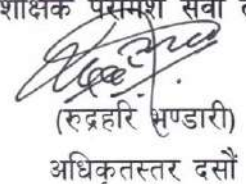 शैक्षिक परामर्श सेवा
(रुद्रहरि भण्डारी)
अधिकृतस्तर दसौं